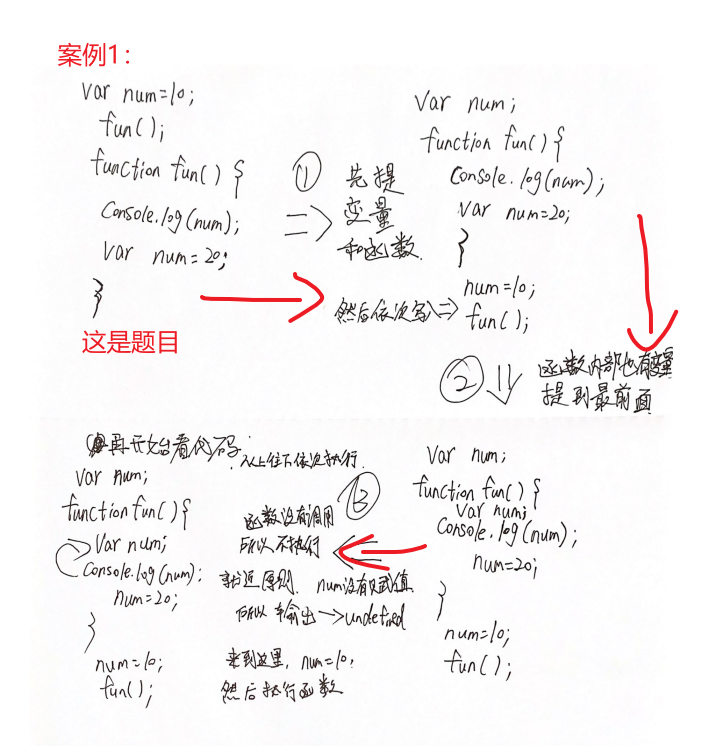 案例1：
var num=10;
fun();
function fun() {
console.log(num);
var num=20;
}
这是题目
① 先提
变量
和函数
然后依次写入=>
var num;
function fun() {
console.log(num);
var num=20;
}
num=10;
fun();
② 函数内部也有变量
提到最前面
var num;
function fun() {
var num;
console.log(num);
num=20;
}
num=10;
fun();
③
再开始看代码，从上往下依次执行.
var num;
function fun() {
var num;
console.log(num);
num=20;
}
num=10;
fun();
函数没有调用
所以不执行
就近原则. num没有赋值
所以输出→undefined
来到这里, num=10,
然后执行函数